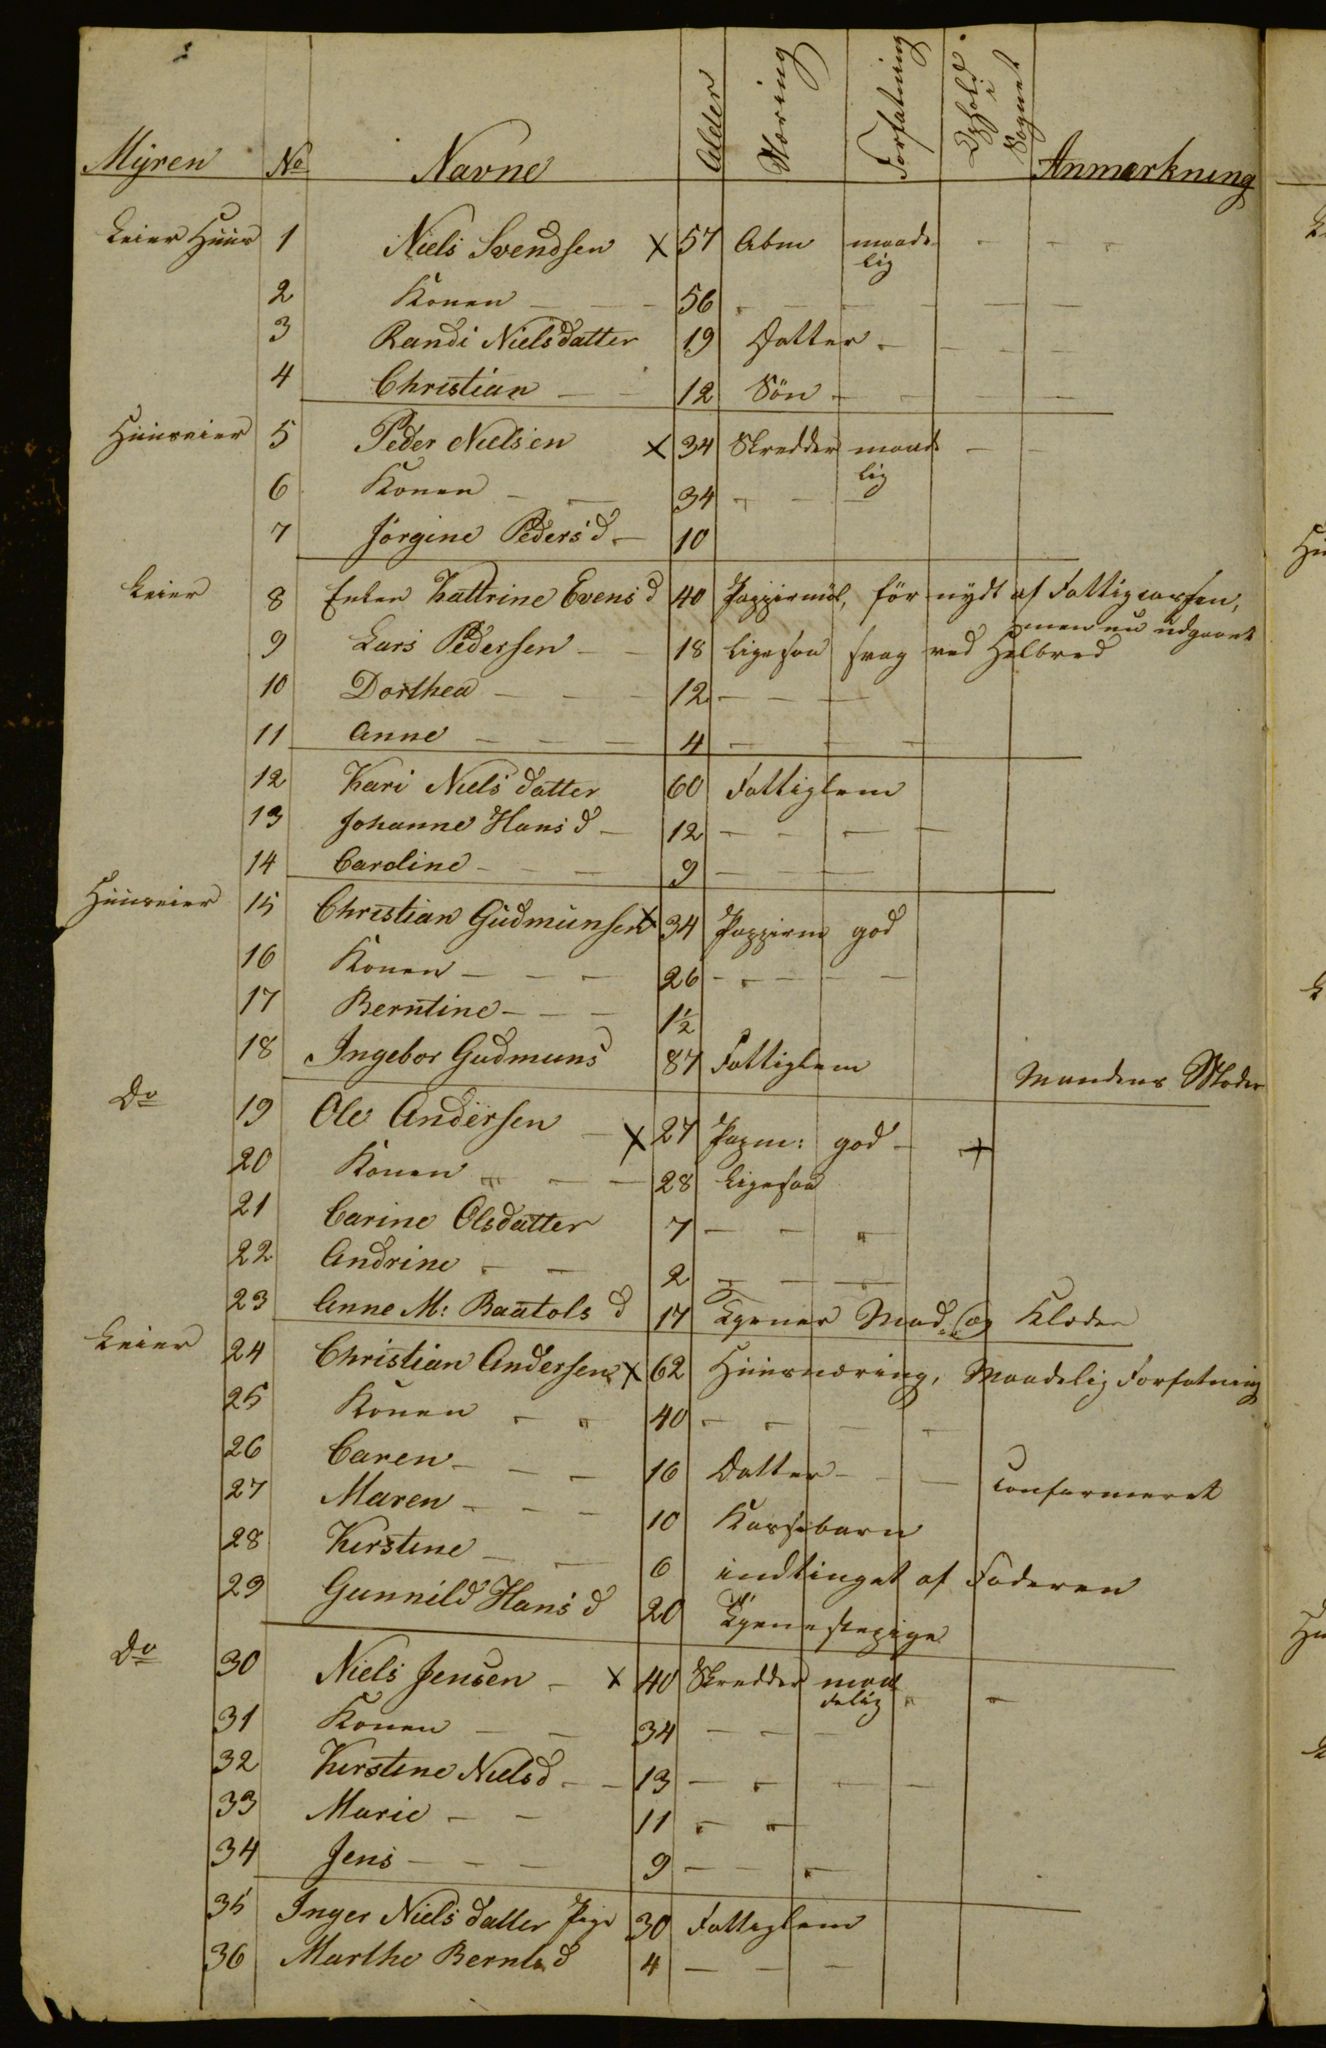 Myren No Navne Alder Næring Forfatning Ophold i Sognet Anmærkning
Leier Huus 1 Niels Svendsen x 57 Abm maade
lig
2 Konen — — 56 — — — — —
3 Randi Nielsdatter 19 Datter — — — —
4 Christian — — 12 Sön — — — —
Huuseier 5 Peder Nielsen x 34 Skredder maade — —
lig
6 Konen — — 34 — — —
7 Jörgine Peders d — 10
Leier 8 Enken Kattrine Evens d 40 Pappirmöl, för nydt af Fattigcassen,
men nu udgaaet
9 Lars Pedersen — — 18 ligesaa svag ved Helbred
10 Dorthea — — — 12 — — —
11 Anne — — — 4 — — —
12 Kari Niels datter 60 Fattiglem
13 Johanne Hans d — 12 — — — —
14 Caroline — — — 9 — — —
Huuseier 15 Christian Gudmunsen x 34 Pappirm god
16 Konen — — — 26 — — — — —
17 Berntine — — — 1½
18 Ingebor Gudmuns 87 Fattiglem Mandens Moder
Do 19 Ole Andersen — x 27 Papm: god — +
20 Konen — — — 28 Ligesaa
21 Carine Olsdatter 7 — — —
22 Andrine — — 2 — — —
23 Anne M: Baatols d 17 Tjener Mad og Klæder
Leier 24 Christian Andersen x 62 Huusnæring, Maadelig Forfatning
25 Konen — — 40 — — — —
26 Caren — — — 16 Datter — — — confirmeret
27 Maren — — — 10 Kassebarn
28 Kirstine — — 6 indtinget af Faderen
29 Gunnild Hans d 20 Tjenestepige
Do 30 Niels Jensen — x 40 Skredder maa — —
delig
31 Konen — — 34 — — —
32 Kirstine Niels d — — 13 — — — —
33 Marie — — 11 — —
34 Jens — — — 9 — — —
35 Inger Niels datter Pige 30 Fattiglem
36 Marthe Bernts d 4 — — —